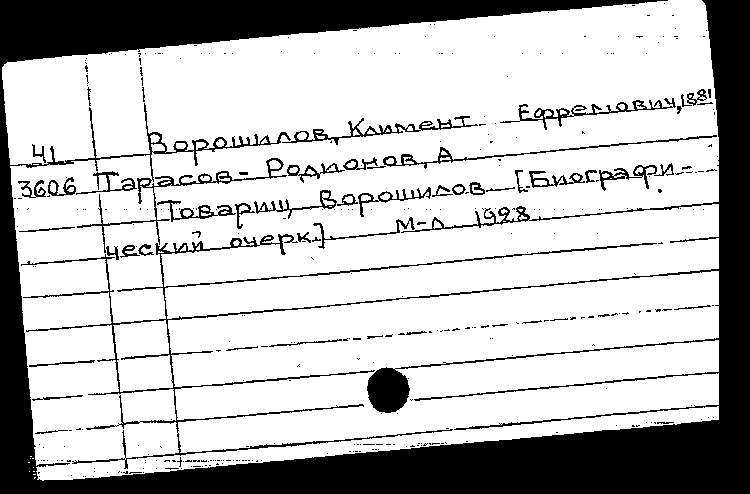 Ворошилов, Климент Ефремович, 1881
41
3606 Тарасов-Родионов, А
Товарищ Ворошилов [Биографи-
ческий очерк.] М-Л 1928